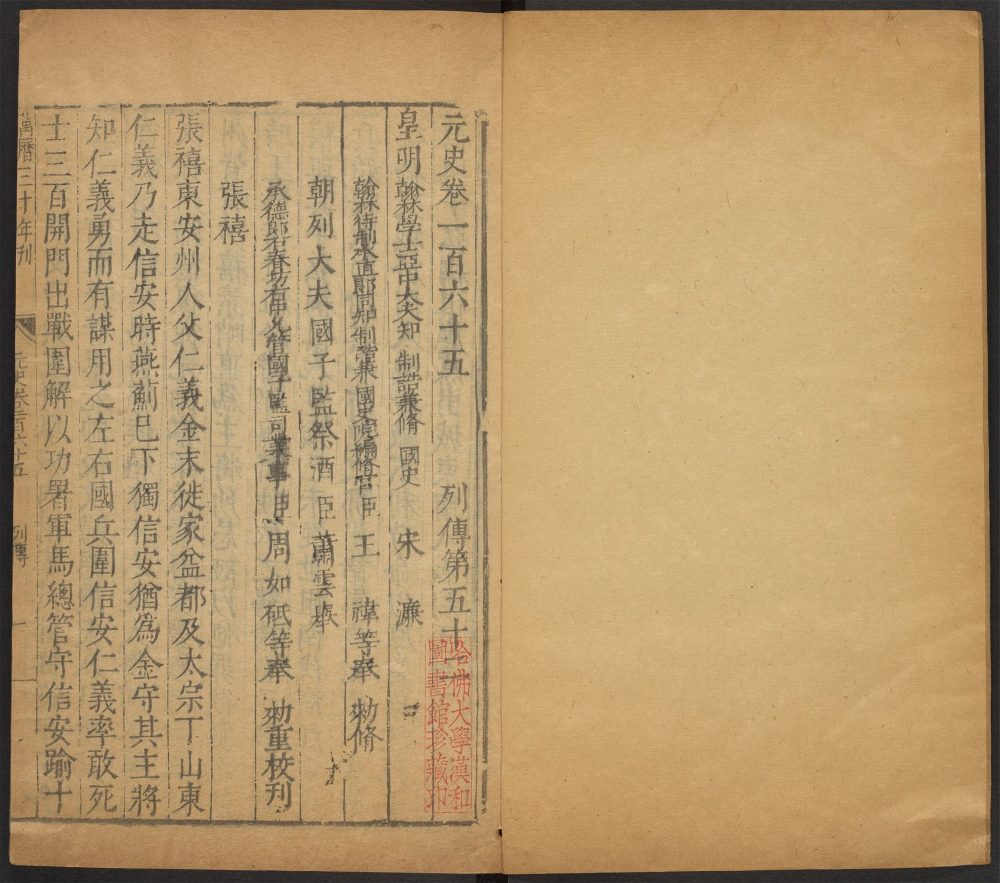 元史卷一百六十五 列傳第五十二
皇明翰林學士亞中大夫知 制誥兼脩 國史 宋 濂
翰林待制承直郎同知制誥兼國史院編脩官臣 王 禕等奉 勑脩
朝列大夫國子監祭酒臣蕭雲舉
承德郎右春坊右中允管國子監司業事臣周如砥等奉 勑重校刊
張禧
張禧東安州人父仁義金末徙家益都及太宗丅山東
仁義乃走信安時燕薊已下獨信安猶爲金守其主將
知仁義勇而有謀用之左右國兵圍信安仁義率敢死
士三百開門出戰圍解以功署軍馬總管守信安踰十
萬曆三十年刊
元史卷一百六十五
列傳
一
哈佛大學漢和
圖書館珍藏印